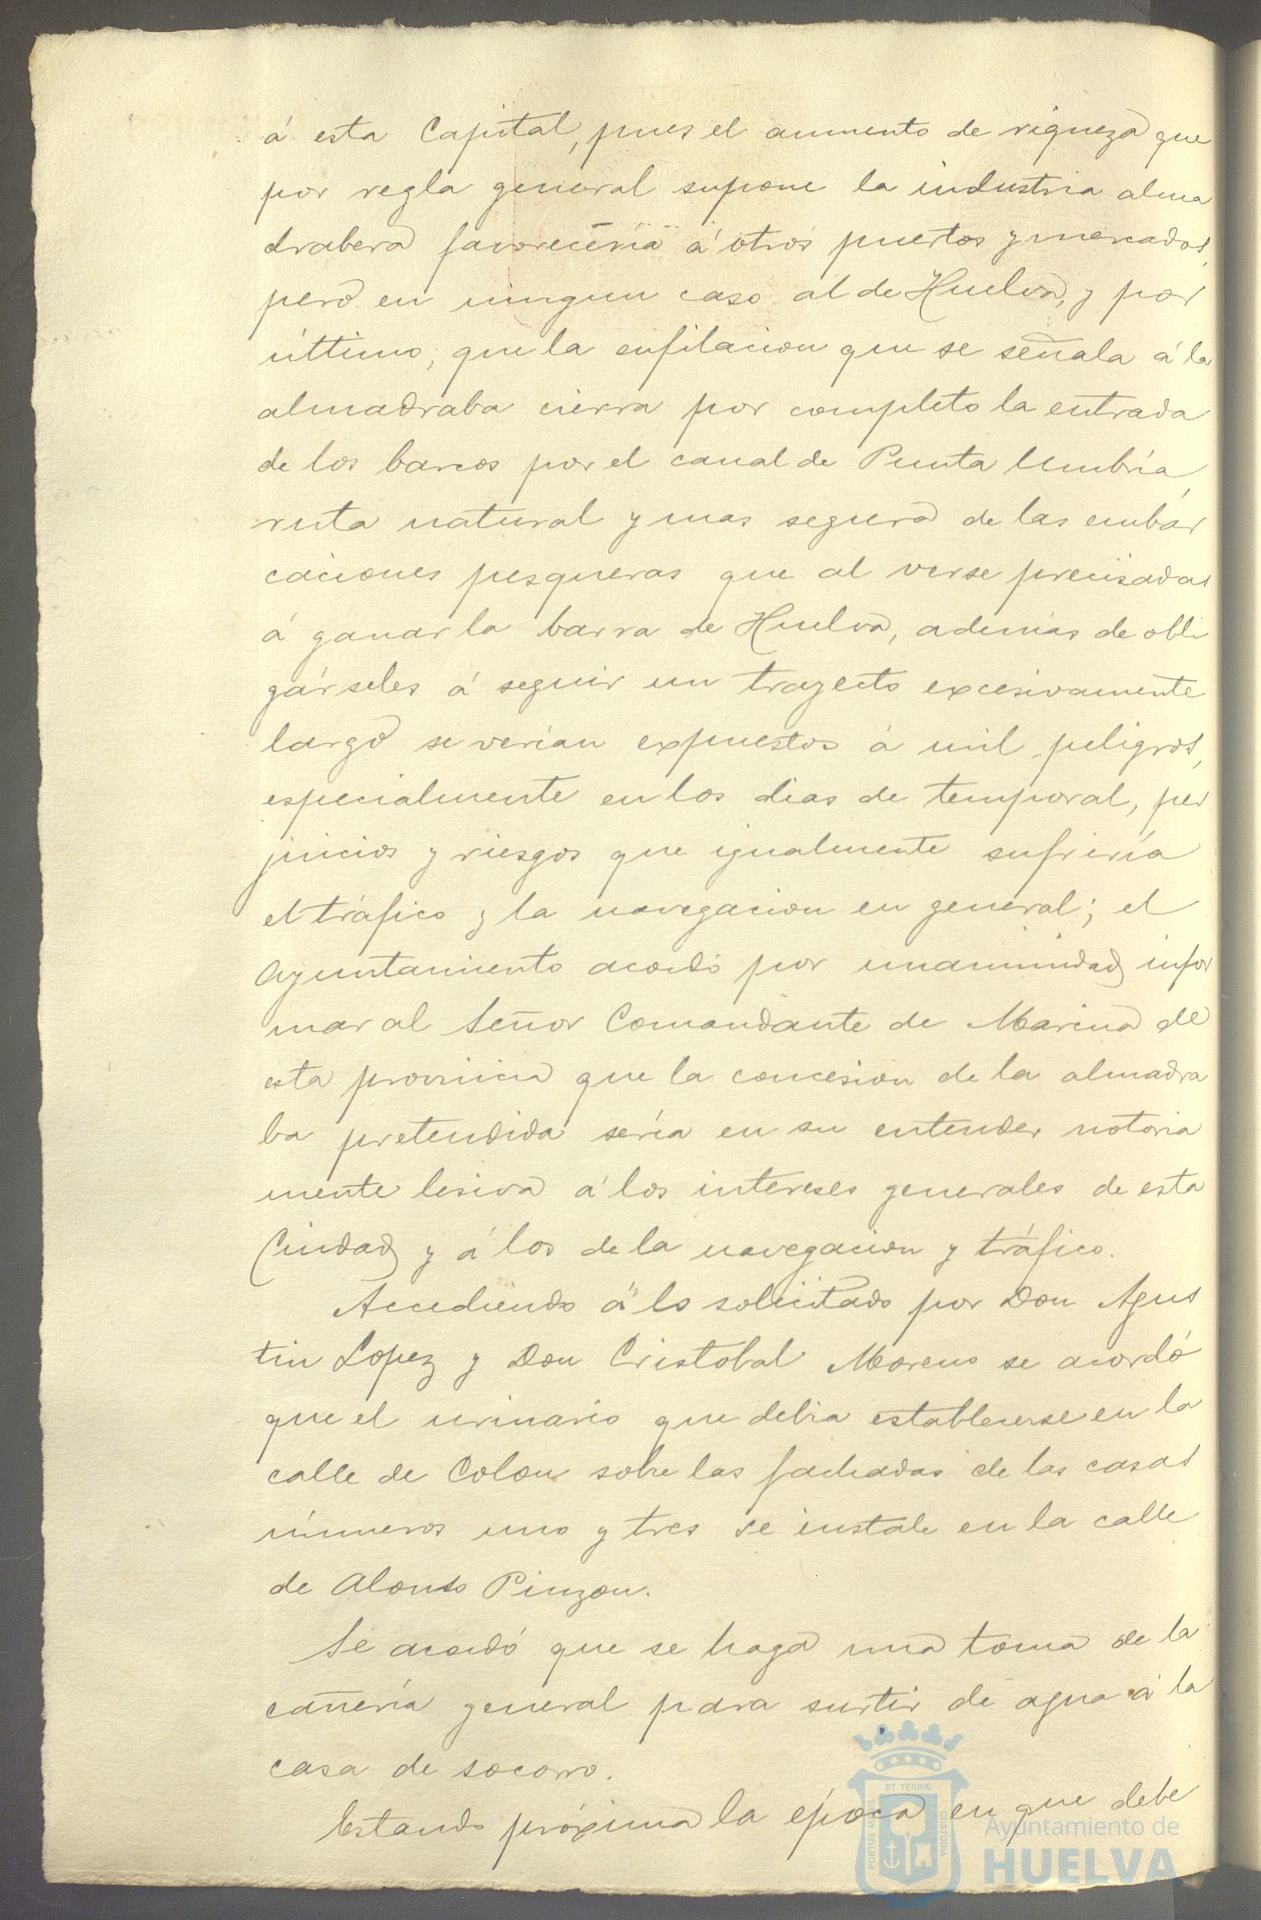 á esta Capital, pues el aumento de riqueza que
por regla general supone la industria alma
drabera favorecería á otros puertos y mercados,
pero en ningun caso al de Huelva, y por
último, que la enfilacion que se señala á la
almadraba cierra por completo la entrada
de los barcos por el canal de Punta Umbría,
ruta natural y mas segura de las embar
caciones pesqueras que al verse precisadas
á ganar la barra de Huelva, además de obli
gárseles á seguir un trayecto excesivamente
largo se verían expuestos á mil peligros,
especialmente en los dias de temporal, per
juicios y riesgos que igualmente sufriría
el tráfico y la navegacion en general; el
Ayuntamiento acordó por unanimidad infor
mar al Señor Comandante de Marina de
esta provincia que la concesion de la almadra
ba pretendida sería en su entender notoria
mente lesiva á los intereses generales de esta
Ciudad y á los de la navegacion y tráfico.
Accediendo á lo solicitado por Don Agus
tin Lopez y Don Cristobal Moreno se acordó
que el urinario que debia establecerse en la
calle de Colon sobre las fachadas de las casas
números uno y tres se instale en la calle
de Alonso Pinzon.
Se acordó que se haga una toma de la
cañería general para surtir de agua á la
casa de socorro.
Estando próxima la época en que debe
PORTUS MARIS ET TERRÆ CUSTODIA
Ayuntamiento de
HUELVA